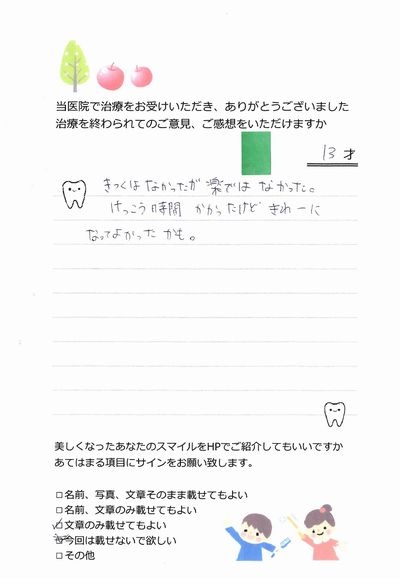 当医院で治療をお受けいただき、ありがとうございました
治療を終わられてのご意見、ご感想をいただけますか
13 才
きつくはなかったが楽ではなかった。
けっこう時間かかったけどきれーに
なってよかったかも。
美しくなったあなたのスマイルをHPでご紹介してもいいですか
あてはまる項目にサインをお願い致します。
□名前、写真、文章そのまま載せてもよい
□名前、文章のみ載せてもよい
☑文章のみ載せてもよい
□今回は載せないで欲しい
□その他